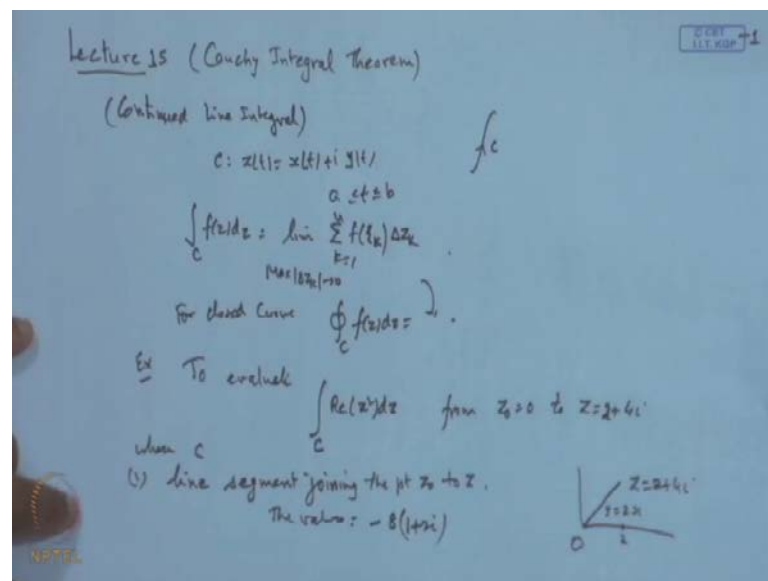 Lecture 15 (Cauchy Integral Theorem)
© CET
I.I.T. KGP
-1
(Continued line Integral)
C: z(t) = x(t) + i y(t)
a ≤ t ≤ b
∫_C f(z)dz = lim_{Max|Δz_k|→0} Σ_{k=1}^{n} f(ξ_k) Δz_k
For closed curve ∮_C f(z)dz =
Ex To evaluate
∫_C Re(z²)dz from z₀=0 to z=2+4i
when C
(1) line segment joining the pt z₀ to z.
The value: -8(1+2i)
z=2+4i
y=2x
O 2
NPTEL